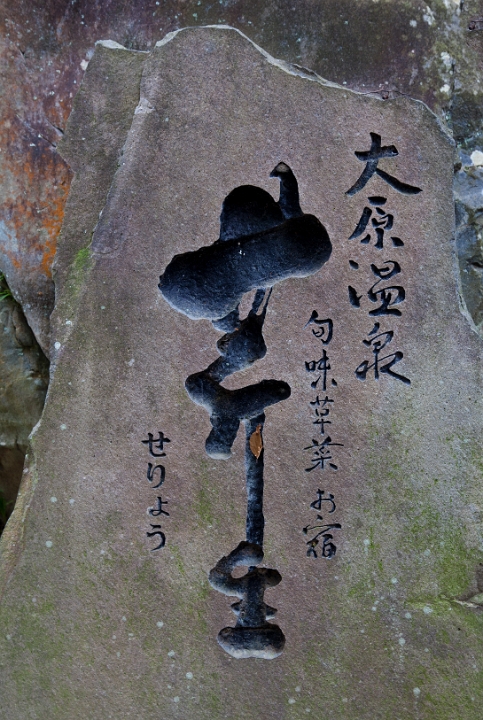 大原温泉
旬味草菜 お宿
芹生
せりょう